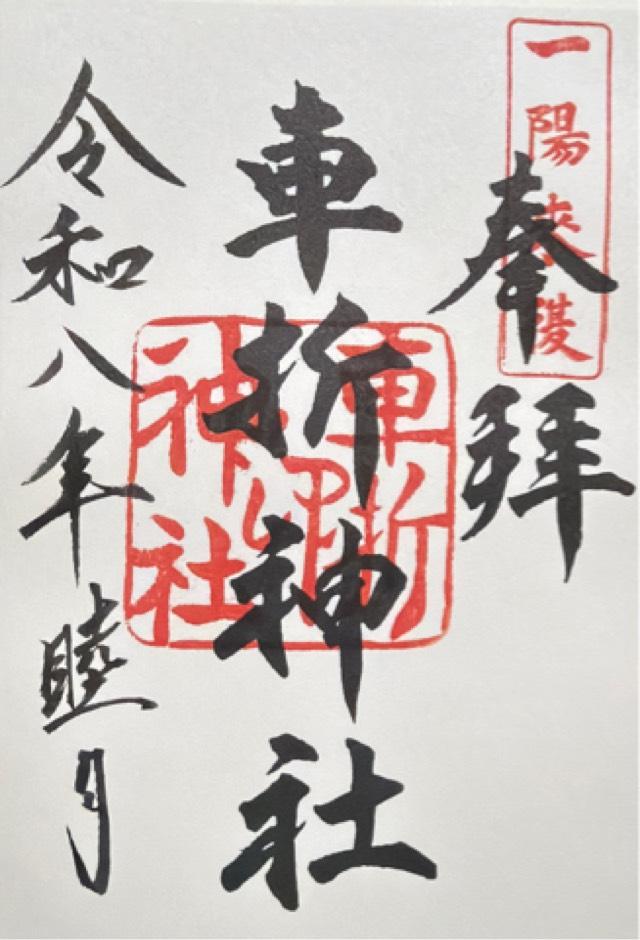 一陽来復
奉拝
車折神社
車折神社印
令和八年睦月